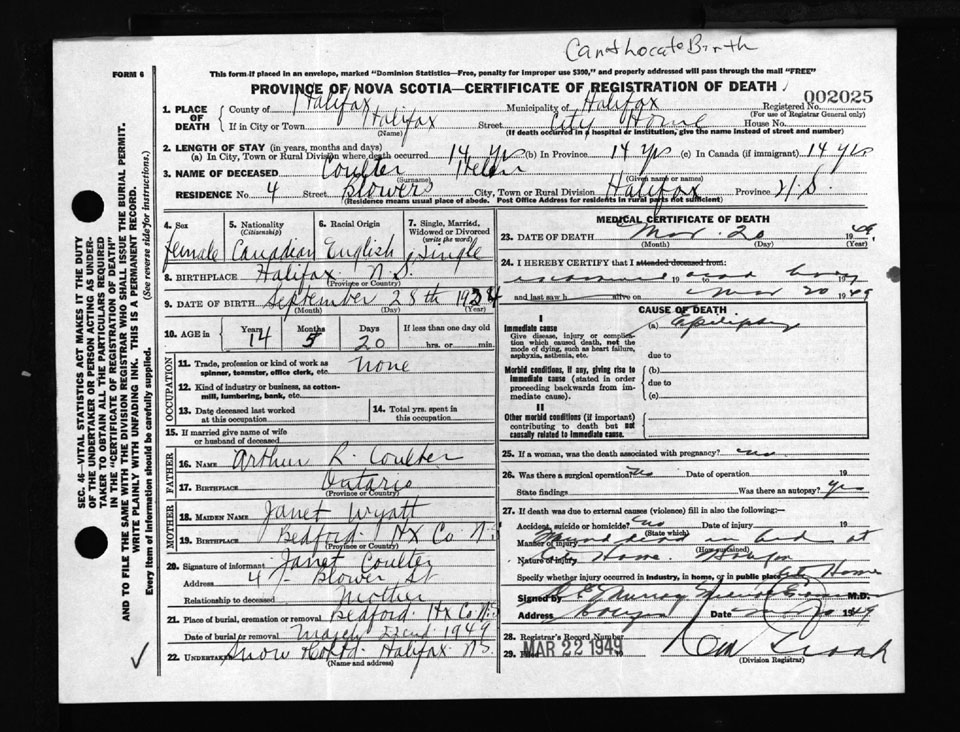 Cannot Locate Birth
FORM 6
This form if placed in an envelope, marked "Dominion Statistics—Free, penalty for improper use $300," and properly addressed will pass through the mail "FREE"
PROVINCE OF NOVA SCOTIA—CERTIFICATE OF REGISTRATION OF DEATH
002025
1. PLACE OF DEATH
County of Halifax Municipality of Halifax Registered No.
(For use of Registrar General only)
If in City or Town Halifax Street City Home House No.
(Name) (If death occurred in a hospital or institution, give the name instead of street and number)
2. LENGTH OF STAY (in years, months and days)
(a) In City, Town or Rural Division where death occurred 14 yrs (b) In Province 14 yrs (c) In Canada (if immigrant) 14 yrs
3. NAME OF DECEASED Coulter Helen
(Surname) (Given name or names)
RESIDENCE No. 4 Street Blowers City, Town or Rural Division Halifax Province N.S.
(Residence means usual place of abode. Post Office Address for residents in rural parts not sufficient)
4. Sex female
5. Nationality (Citizenship) Canadian
6. Racial Origin English
7. Single, Married, Widowed or Divorced (write the word) Single
8. BIRTHPLACE Halifax N.S.
(Province or Country)
9. DATE OF BIRTH September 28th 1934
(Month) (Day) (Year)
10. AGE in Years 14 Months 5 Days 20 If less than one day old hrs. or min.
OCCUPATION
11. Trade, profession or kind of work as spinner, teamster, office clerk, etc. None
12. Kind of industry or business, as cotton-mill, lumbering, bank, etc.
13. Date deceased last worked at this occupation
14. Total yrs. spent in this occupation.
15. If married give name of wife or husband of deceased
FATHER
16. NAME Arthur R. Coulter
17. BIRTHPLACE Ontario
(Province or Country)
MOTHER
18. MAIDEN NAME Janet Wyatt
19. BIRTHPLACE Bedford Hx Co N.S.
(Province or Country)
20. Signature of informant Janet Coulter
Address 4 Blower St
Relationship to deceased Mother
21. Place of burial, cremation or removal Bedford Hx Co N.S.
Date of burial or removal March 22nd 1949
22. UNDERTAKER Snow Halifax N.S.
(Name and address)
MEDICAL CERTIFICATE OF DEATH
23. DATE OF DEATH Mar. 20 1949
(Month) (Day) (Year)
24. I HEREBY CERTIFY that I attended deceased from:
dead body 19
and last saw h alive on Mar 20 1949
CAUSE OF DEATH
I
Immediate cause (a) Epilepsy
Give disease, injury or complication which caused death, not the mode of dying, such as heart failure, asphyxia, asthenia, etc.
due to
Morbid conditions, if any, giving rise to immediate cause (stated in order proceeding backwards from immediate cause).
(b)
due to
(c)
II
Other morbid conditions (if important) contributing to death but not causally related to immediate cause.
25. If a woman, was the death associated with pregnancy? no
26. Was there a surgical operation? No Date of operation 19
State findings Was there an autopsy? yes
27. If death was due to external causes (violence) fill in also the following:—
Accident, suicide or homicide? no Date of injury 19
(State which)
Manner of injury Found dead in bed at
(How sustained)
Nature of injury City Home
Specify whether injury occurred in industry, in home, or in public place City Home
Signed by Murray M.D.
Address Date 1949
28. Registrar's Record Number
29. Filed MAR 22 1949
(Division Registrar)
SEC. 46—VITAL STATISTICS ACT MAKES IT THE DUTY
OF THE UNDERTAKER OR PERSON ACTING AS UNDER-
TAKER TO OBTAIN ALL THE PARTICULARS REQUIRED
IN THE "CERTIFICATE OF REGISTRATION OF DEATH"
AND TO FILE THE SAME WITH THE DIVISION REGISTRAR WHO SHALL ISSUE THE BURIAL PERMIT.
WRITE PLAINLY WITH UNFADING INK. THIS IS A PERMANENT RECORD.
Every item of information should be carefully supplied. (See reverse side for instructions.)